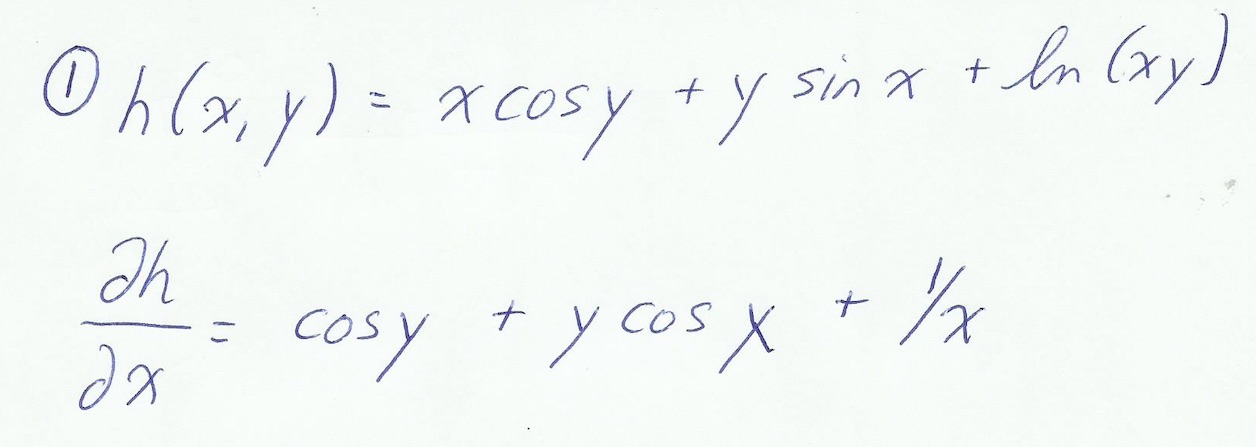 ① h(x, y) = x cos y + y sin x + ln (xy)
∂h/∂x = cos y + y cos x + 1/x